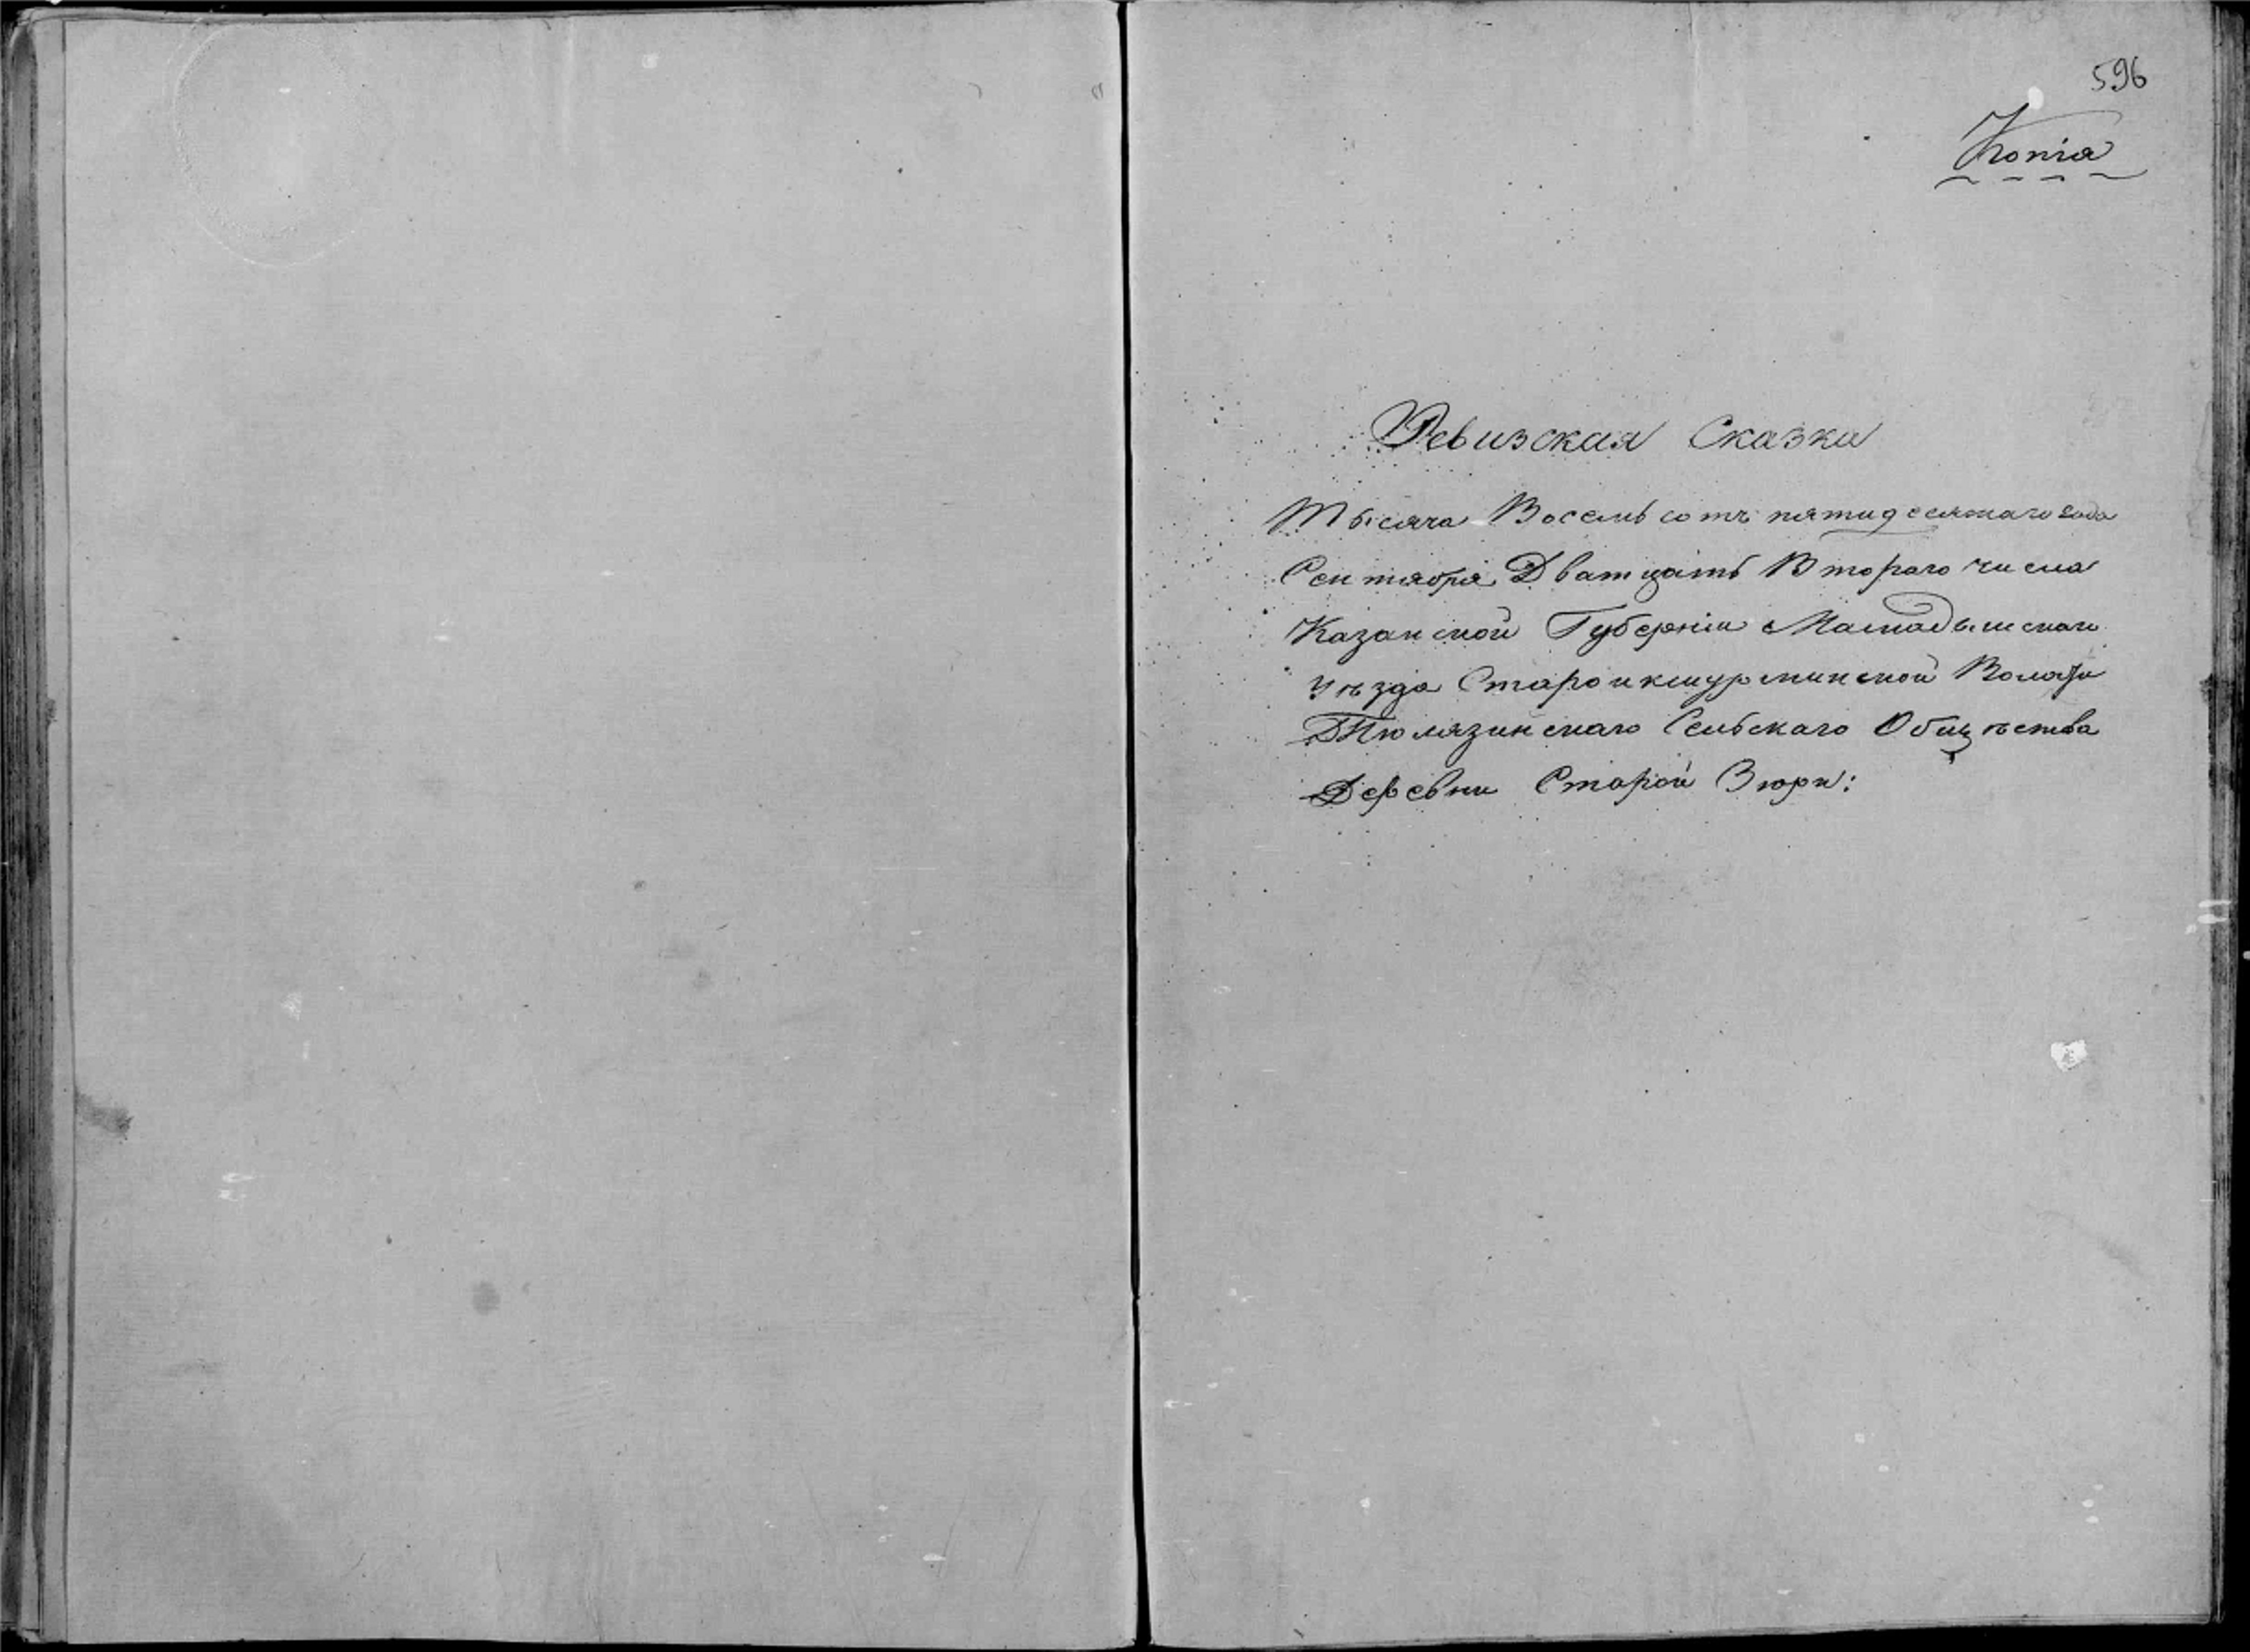 596
Копія
Ревизская Сказка
Тысяча Восемь сотъ пятидесятаго года
Сентября Дватцать Втораго числа
Казанской Губерніи Мамадышскаго
Уѣзда Староикшурминской Волости
Тюлязинскаго Сельскаго Общѣства
Деревни Старой Зюри: